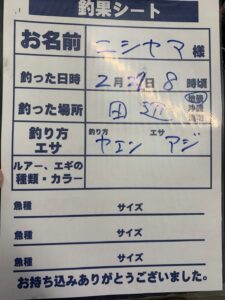 釣果シート
お名前 ニシヤマ 様
釣った日時 2月27日 8時頃
釣った場所 田辺 地磯
釣り方 エサ 釣り方 ヤエン エサ アジ
ルアー、エギの種類・カラー
魚種 サイズ
魚種 サイズ
魚種 サイズ
お持ち込みありがとうございました。